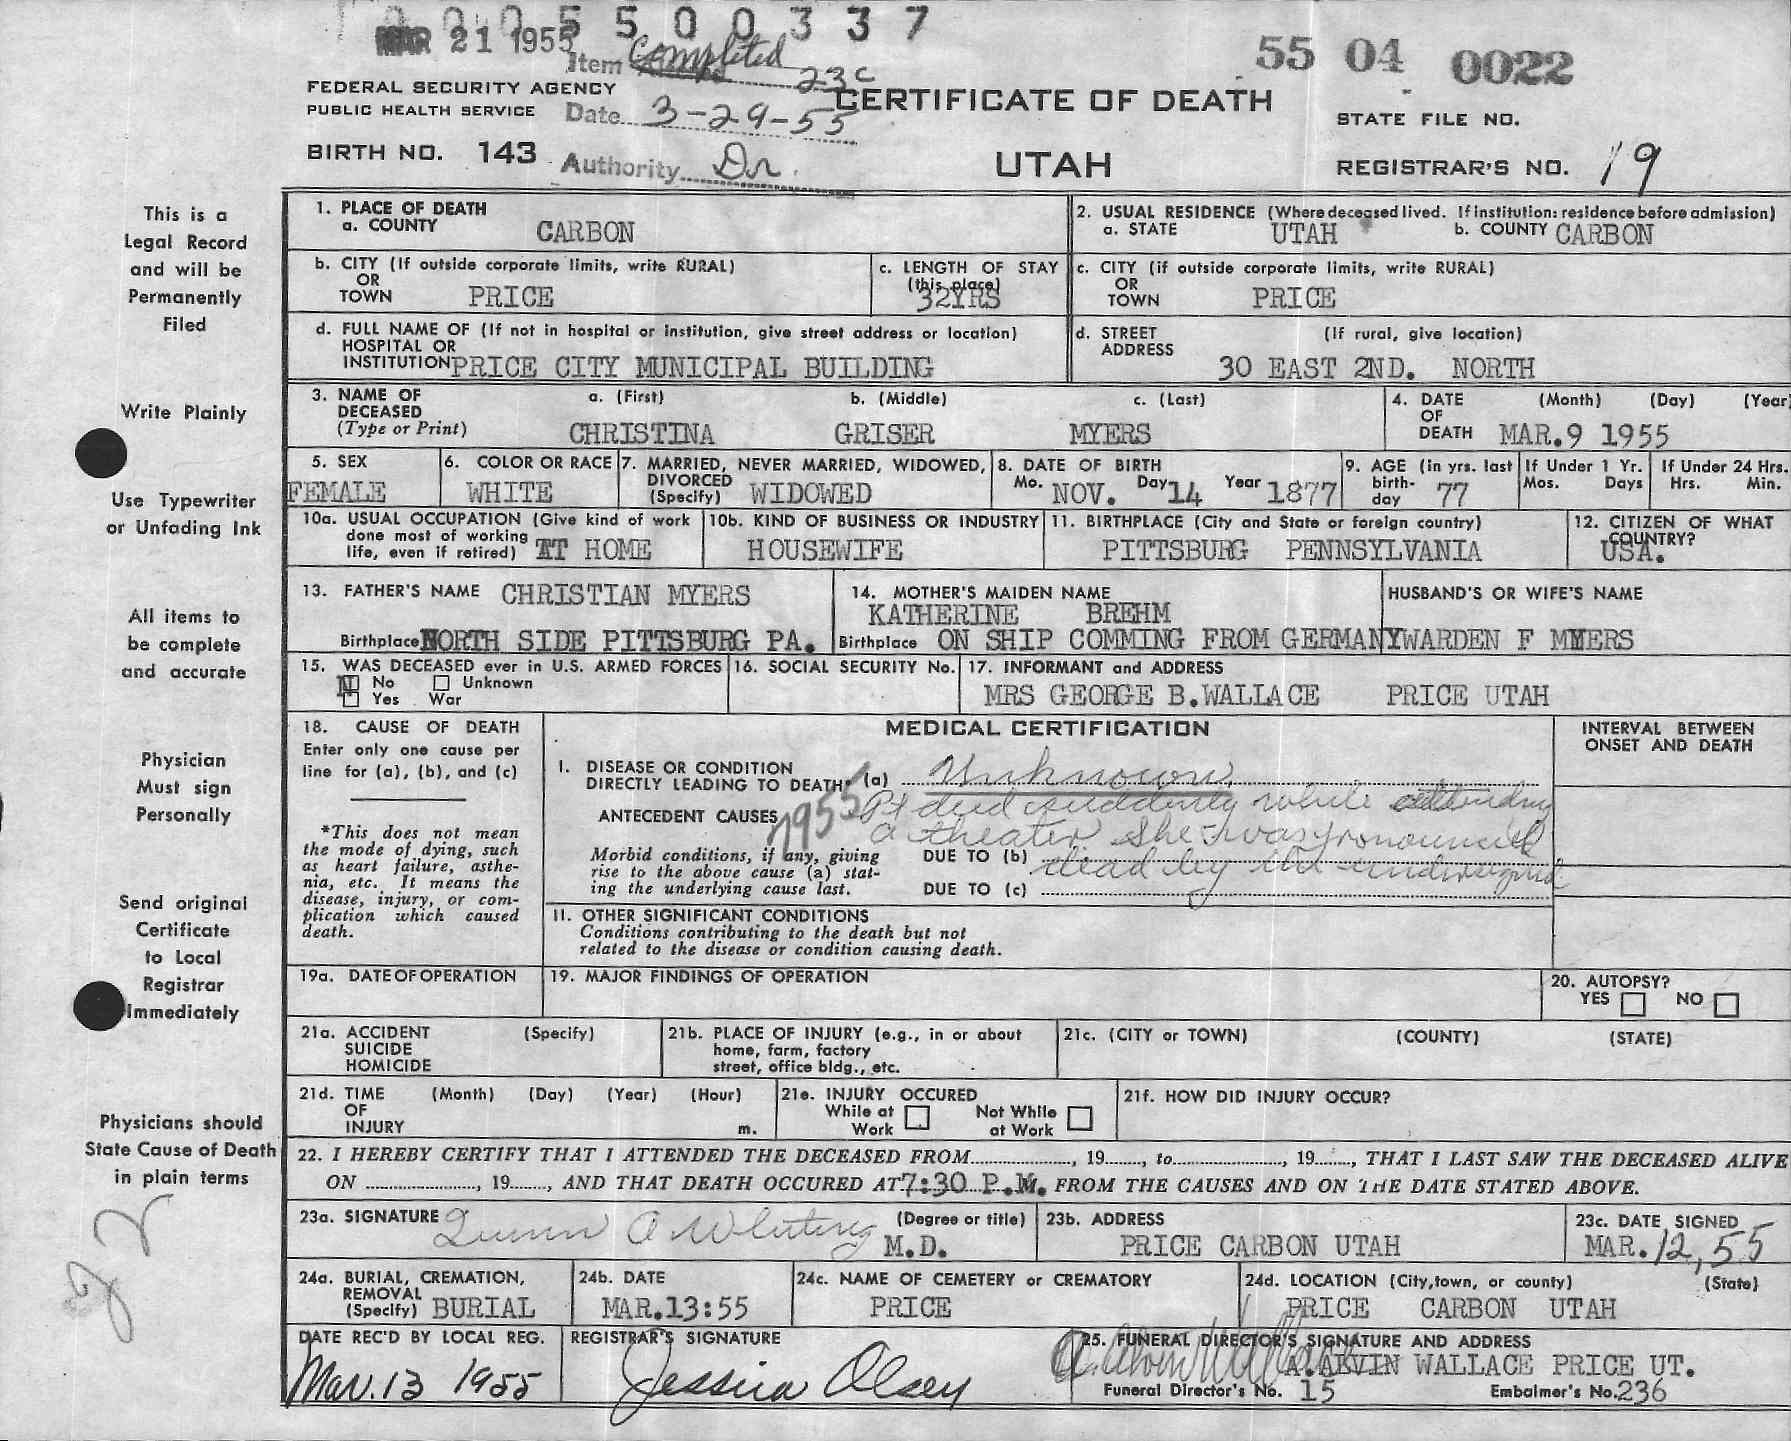 0005500337
MAR 21 1955
Item Completed 23c
55 04 0022
FEDERAL SECURITY AGENCY
PUBLIC HEALTH SERVICE
Date 3-29-55
CERTIFICATE OF DEATH
STATE FILE NO.
BIRTH NO. 143
Authority Dr.
UTAH
REGISTRAR'S NO. 19
This is a
Legal Record
and will be
Permanently
Filed
Write Plainly
Use Typewriter
or Unfading Ink
All items to
be complete
and accurate
Physician
Must sign
Personally
Send original
Certificate
to Local
Registrar
Immediately
Physicians should
State Cause of Death
in plain terms
1. PLACE OF DEATH
a. COUNTY CARBON
2. USUAL RESIDENCE (Where deceased lived. If institution: residence before admission)
a. STATE UTAH b. COUNTY CARBON
b. CITY (If outside corporate limits, write RURAL)
OR
TOWN PRICE
c. LENGTH OF STAY
(this place)
32YRS
c. CITY (if outside corporate limits, write RURAL)
OR
TOWN PRICE
d. FULL NAME OF (If not in hospital or institution, give street address or location)
HOSPITAL OR
INSTITUTION PRICE CITY MUNICIPAL BUILDING
d. STREET (If rural, give location)
ADDRESS
30 EAST 2ND. NORTH
3. NAME OF a. (First) b. (Middle) c. (Last)
DECEASED
(Type or Print) CHRISTINA GRISER MYERS
4. DATE (Month) (Day) (Year)
OF
DEATH MAR.9 1955
5. SEX
FEMALE
6. COLOR OR RACE
WHITE
7. MARRIED, NEVER MARRIED, WIDOWED,
DIVORCED
(Specify) WIDOWED
8. DATE OF BIRTH
Mo. NOV. Day 14 Year 1877
9. AGE (in yrs. last
birth-
day 77
If Under 1 Yr.
Mos. Days
If Under 24 Hrs.
Hrs. Min.
10a. USUAL OCCUPATION (Give kind of work
done most of working
life, even if retired) AT HOME
10b. KIND OF BUSINESS OR INDUSTRY
HOUSEWIFE
11. BIRTHPLACE (City and State or foreign country)
PITTSBURG PENNSYLVANIA
12. CITIZEN OF WHAT
COUNTRY?
USA.
13. FATHER'S NAME CHRISTIAN MYERS
Birthplace NORTH SIDE PITTSBURG PA.
14. MOTHER'S MAIDEN NAME
KATHERINE BREHM
Birthplace ON SHIP COMMING FROM GERMANY
HUSBAND'S OR WIFE'S NAME
WARDEN F MYERS
15. WAS DECEASED ever in U.S. ARMED FORCES
N No Unknown
Yes War
16. SOCIAL SECURITY No.
17. INFORMANT and ADDRESS
MRS GEORGE B.WALLACE PRICE UTAH
18. CAUSE OF DEATH
Enter only one cause per
line for (a), (b), and (c)
*This does not mean
the mode of dying, such
as heart failure, asthe-
nia, etc. It means the
disease, injury, or com-
plication which caused
death.
MEDICAL CERTIFICATION
INTERVAL BETWEEN
ONSET AND DEATH
I. DISEASE OR CONDITION
DIRECTLY LEADING TO DEATH* (a) Unknown
Pt died suddenly while attending
ANTECEDENT CAUSES 1955
a theater. She was pronounced
Morbid conditions, if any, giving
rise to the above cause (a) stat-
ing the underlying cause last.
DUE TO (b) dead by the undersigned
DUE TO (c)
II. OTHER SIGNIFICANT CONDITIONS
Conditions contributing to the death but not
related to the disease or condition causing death.
19a. DATE OF OPERATION
19. MAJOR FINDINGS OF OPERATION
20. AUTOPSY?
YES NO
21a. ACCIDENT (Specify)
SUICIDE
HOMICIDE
21b. PLACE OF INJURY (e.g., in or about
home, farm, factory
street, office bldg., etc.
21c. (CITY or TOWN) (COUNTY) (STATE)
21d. TIME (Month) (Day) (Year) (Hour)
OF
INJURY m.
21e. INJURY OCCURED
While at Work Not While at Work
21f. HOW DID INJURY OCCUR?
22. I HEREBY CERTIFY THAT I ATTENDED THE DECEASED FROM , 19 , to , 19 , THAT I LAST SAW THE DECEASED ALIVE
ON , 19 , AND THAT DEATH OCCURED AT 7:30 P.M. FROM THE CAUSES AND ON THE DATE STATED ABOVE.
23a. SIGNATURE Quinn A Whiting (Degree or title)
M.D.
23b. ADDRESS
PRICE CARBON UTAH
23c. DATE SIGNED
MAR. 12, 55
24a. BURIAL, CREMATION,
REMOVAL
(Specify) BURIAL
24b. DATE
MAR.13:55
24c. NAME OF CEMETERY or CREMATORY
PRICE
24d. LOCATION (City, town, or county) (State)
PRICE CARBON UTAH
DATE REC'D BY LOCAL REG.
Mar. 13 1955
REGISTRAR'S SIGNATURE
Jessica Olsey
25. FUNERAL DIRECTOR'S SIGNATURE AND ADDRESS
A. Alvin Wallace
A.ALVIN WALLACE PRICE UT.
Funeral Director's No. 15 Embalmer's No. 236